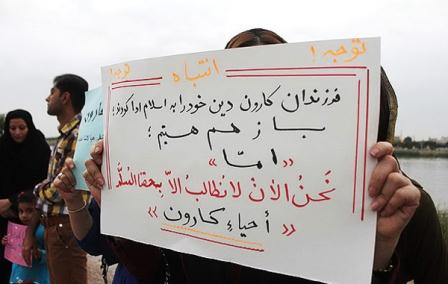 توجه! انتباه توجه!
فرزندان کارون دین خود را به اسلام ادا کردند؛
باز هم هستیم؛
«امّا»
نَحنُ الأنْ لانُطالبُ الاّ بِحقنا المُسلَّم
«أحیاءِ کارون»